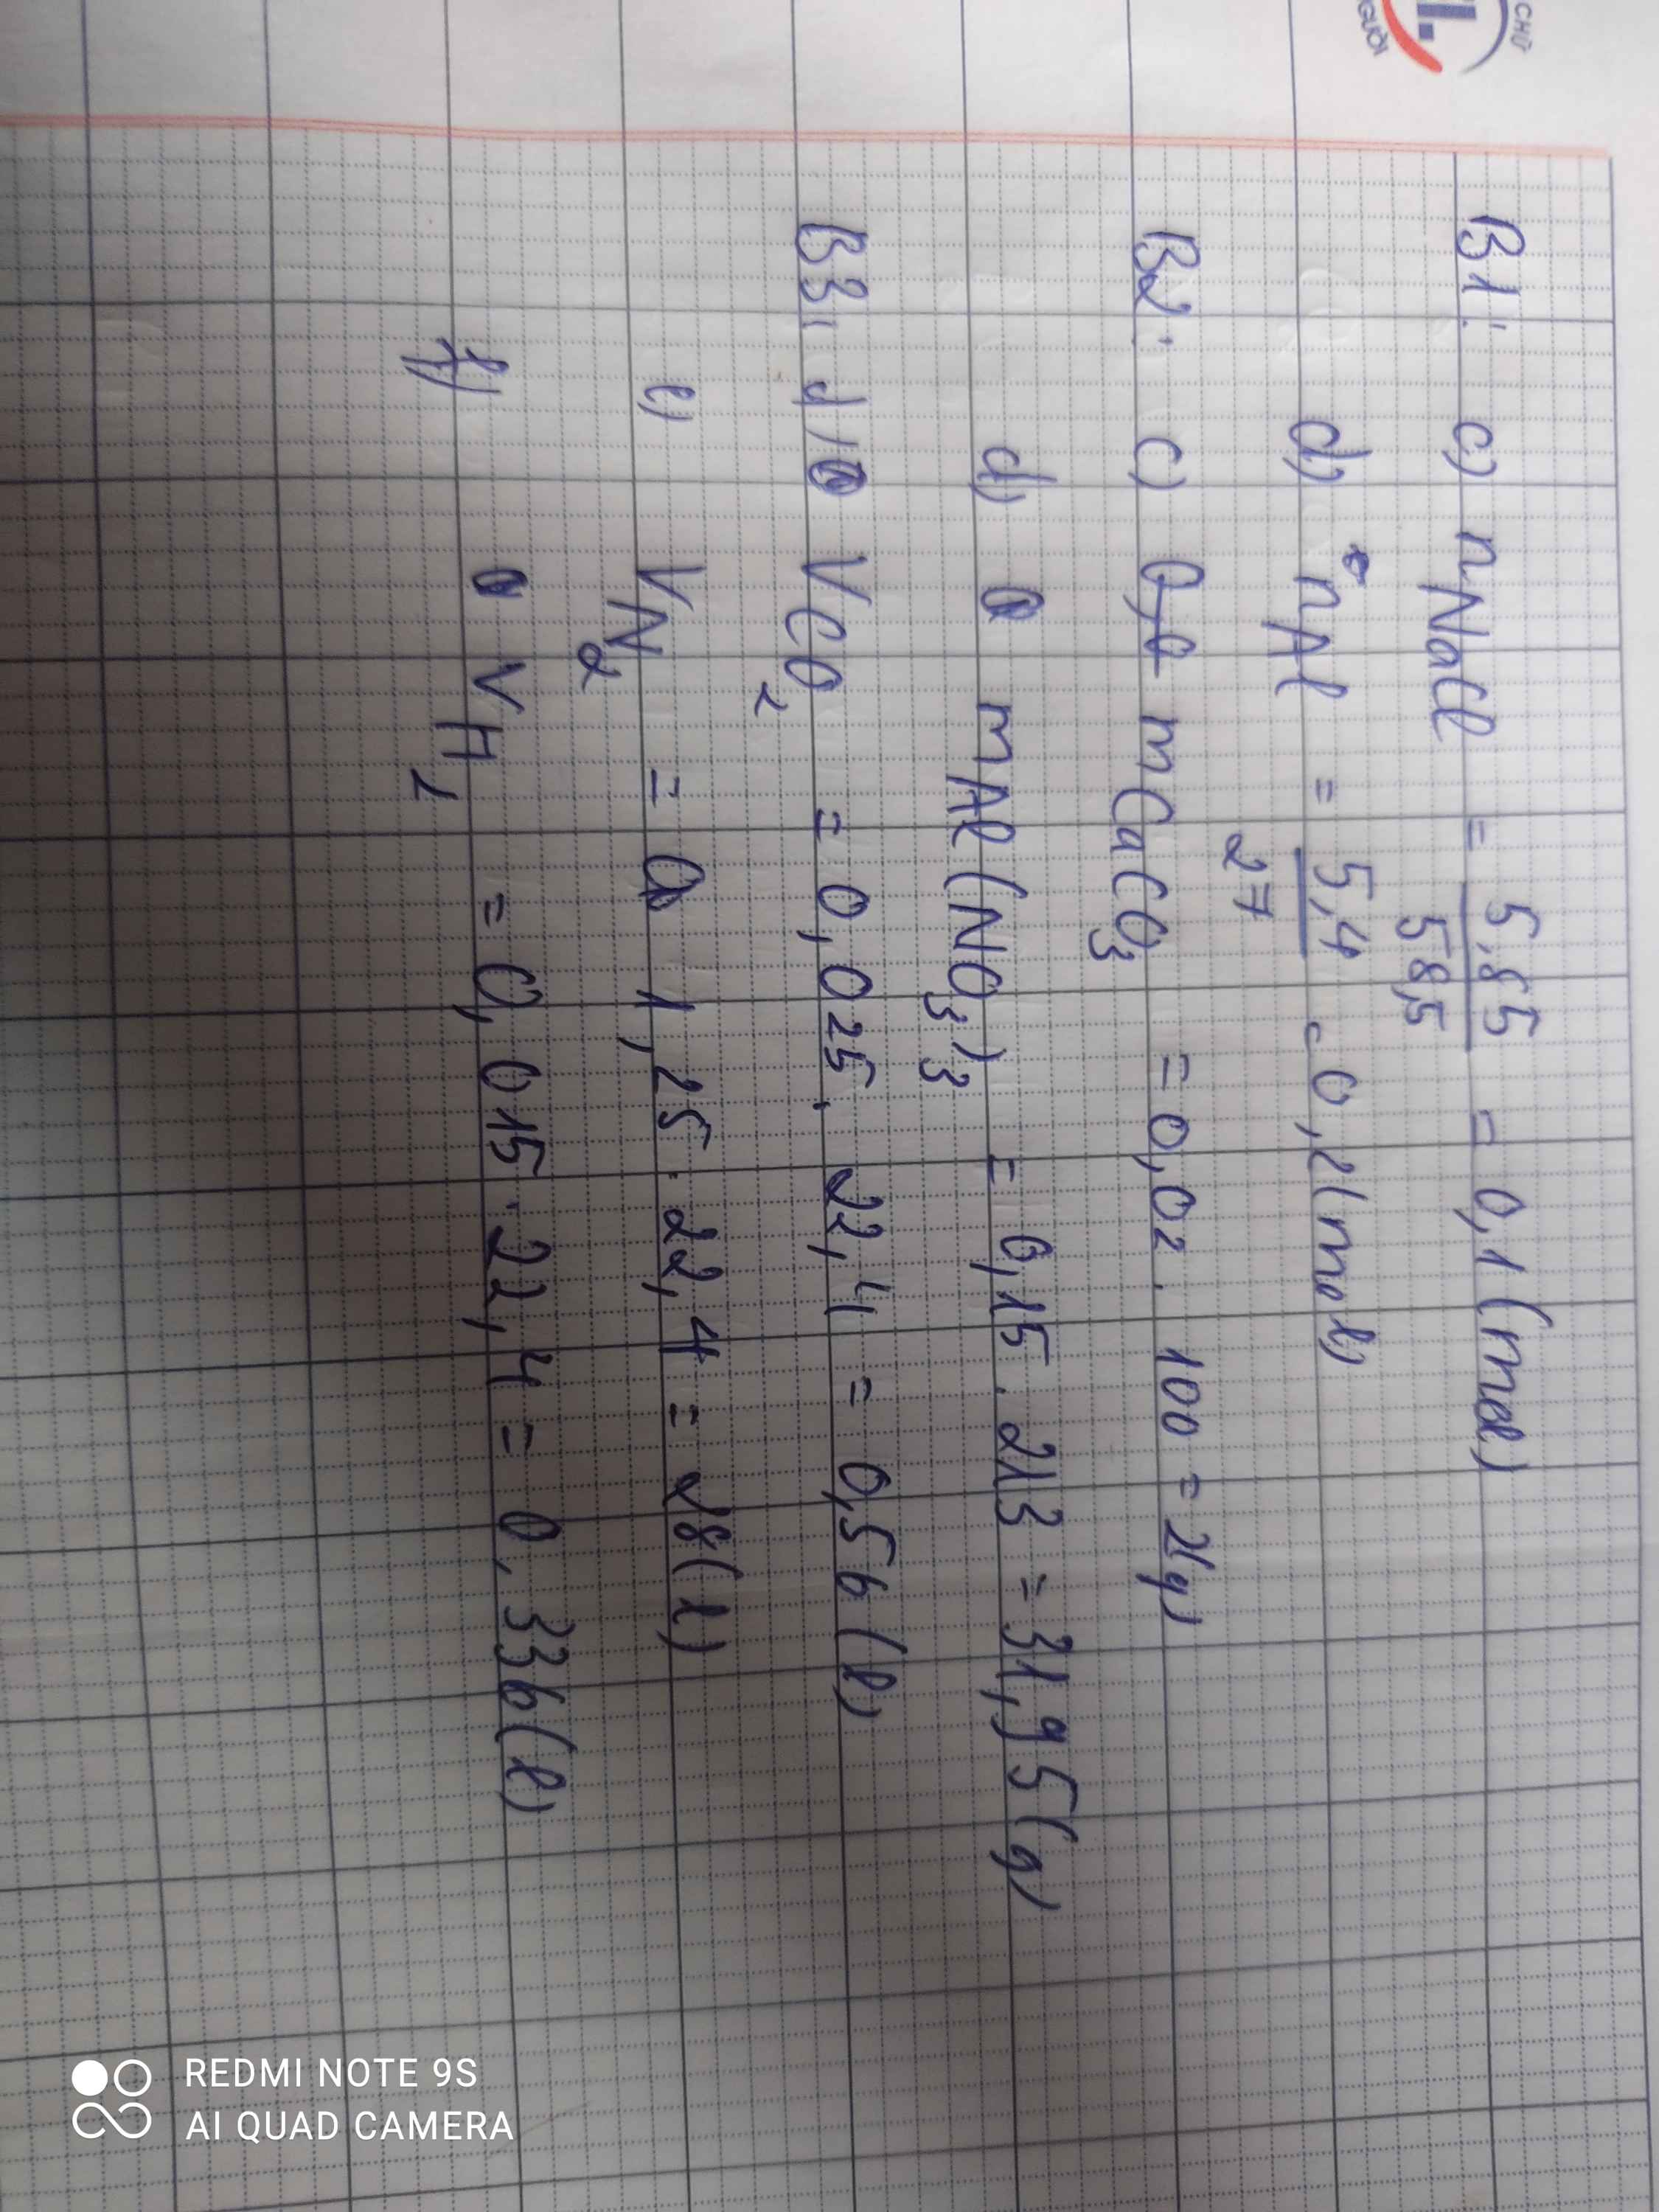 CHỮ
NGƯỜI
B1: c) nNaCl = 5,85 / 58,5 = 0,1 (mol)
d) nAl = 5,4 / 27 = 0,2 (mol)
B2: c) mCaCO3 = 0,02 . 100 = 2(g)
d) mAl(NO3)3 = 0,15 . 213 = 31,95 (g)
B3: d) VCO2 = 0,025 . 22,4 = 0,56 (l)
e) VN2 = 1,25 . 22,4 = 28 (l)
f) VH2 = 0,015 . 22,4 = 0,336 (l)
REDMI NOTE 9S
AI QUAD CAMERA